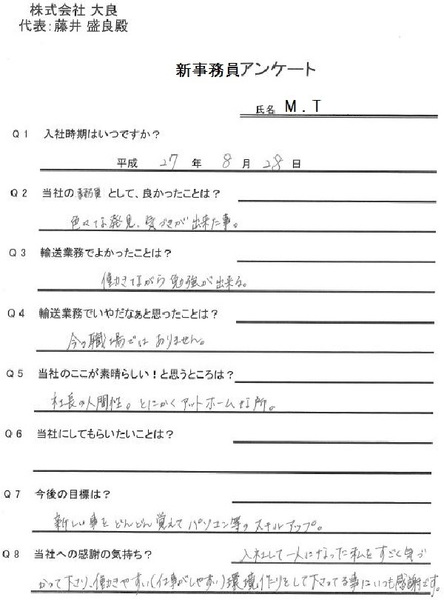 株式会社 大良
代表:藤井 盛良殿
新事務員アンケート
氏名 M.T
Q1 入社時期はいつですか?
平成 27 年 8 月 28 日
Q2 当社の事務員として、良かったことは?
色々な発見、気づきが出来た事。
Q3 輸送業務でよかったことは?
働きながら勉強が出来る。
Q4 輸送業務でいやだなぁと思ったことは?
今の職場ではありません。
Q5 当社のここが素晴らしい!と思うところは?
社長の人間性。とにかくアットホームな所。
Q6 当社にしてもらいたいことは?
Q7 今後の目標は?
新しい事をどんどん覚えてパソコン等のスキルアップ。
Q8 当社への感謝の気持ち? 入社して一人になった私をすごく気づ
かって下さり、働きやすい(仕事がしやすい)環境作りをして下さってる事にいつも感謝です。